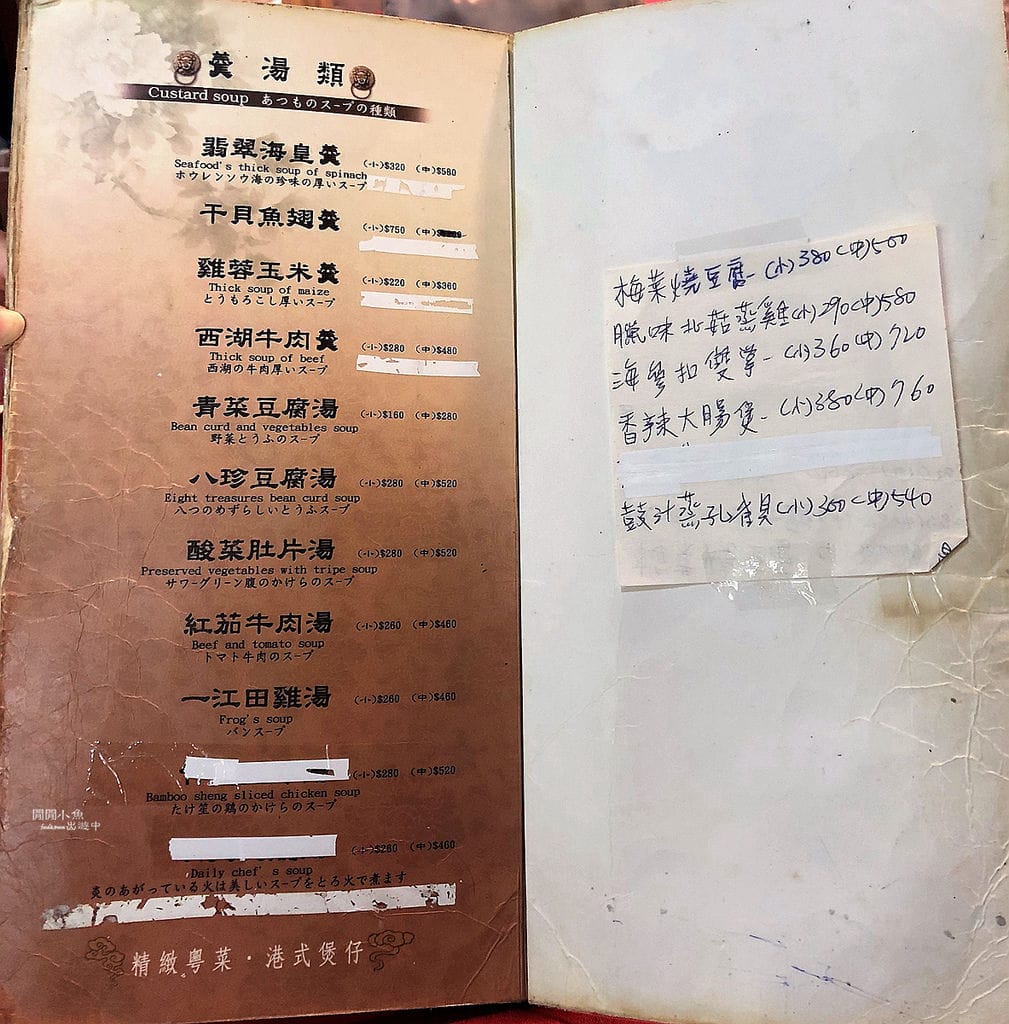 羹湯類
Custard soup あつものスープの種類
翡翠海皇羹 (小)$320 (中)$580
Seafood's thick soup of spinach
ホウレンソウ海の珍味の厚いスープ
干貝魚翅羹 (小)$750 (中)
雞蓉玉米羹 (小)$220 (中)$360
Thick soup of maize
とうもろこし厚いスープ
西湖牛肉羹 (小)$280 (中)$480
Thick soup of beef
西湖の牛肉厚いスープ
青菜豆腐湯 (小)$160 (中)$280
Bean curd and vegetables soup
野菜とうふのスープ
八珍豆腐湯 (小)$280 (中)$520
Eight treasures bean curd soup
八つのめずらしいとうふスープ
酸菜肚片湯 (小)$280 (中)$520
Preserved vegetables with tripe soup
サワーグリーン腹のかけらのスープ
紅茄牛肉湯 (小)$260 (中)$460
Beef and tomato soup
トマト牛肉のスープ
一江田雞湯 (小)$260 (中)$460
Frog's soup
バンスープ
(小)$280 (中)$520
Bamboo sheng sliced chicken soup
たけ笙の鶏のかけらのスープ
(小)$260 (中)$460
Daily chef's soup
炎のあがっている火は美しいスープをとろ火で煮ます
精緻粵菜·港式煲仔
閒閒小魚
出遊中
梅菜燒豆腐-(小)380(中)560
臘味北菇蒸雞(小)290(中)580
海參扣雙掌-(小)360(中)720
香辣大腸煲-(小)380(中)760
鼓汁蒸孔雀貝(小)360(中)540